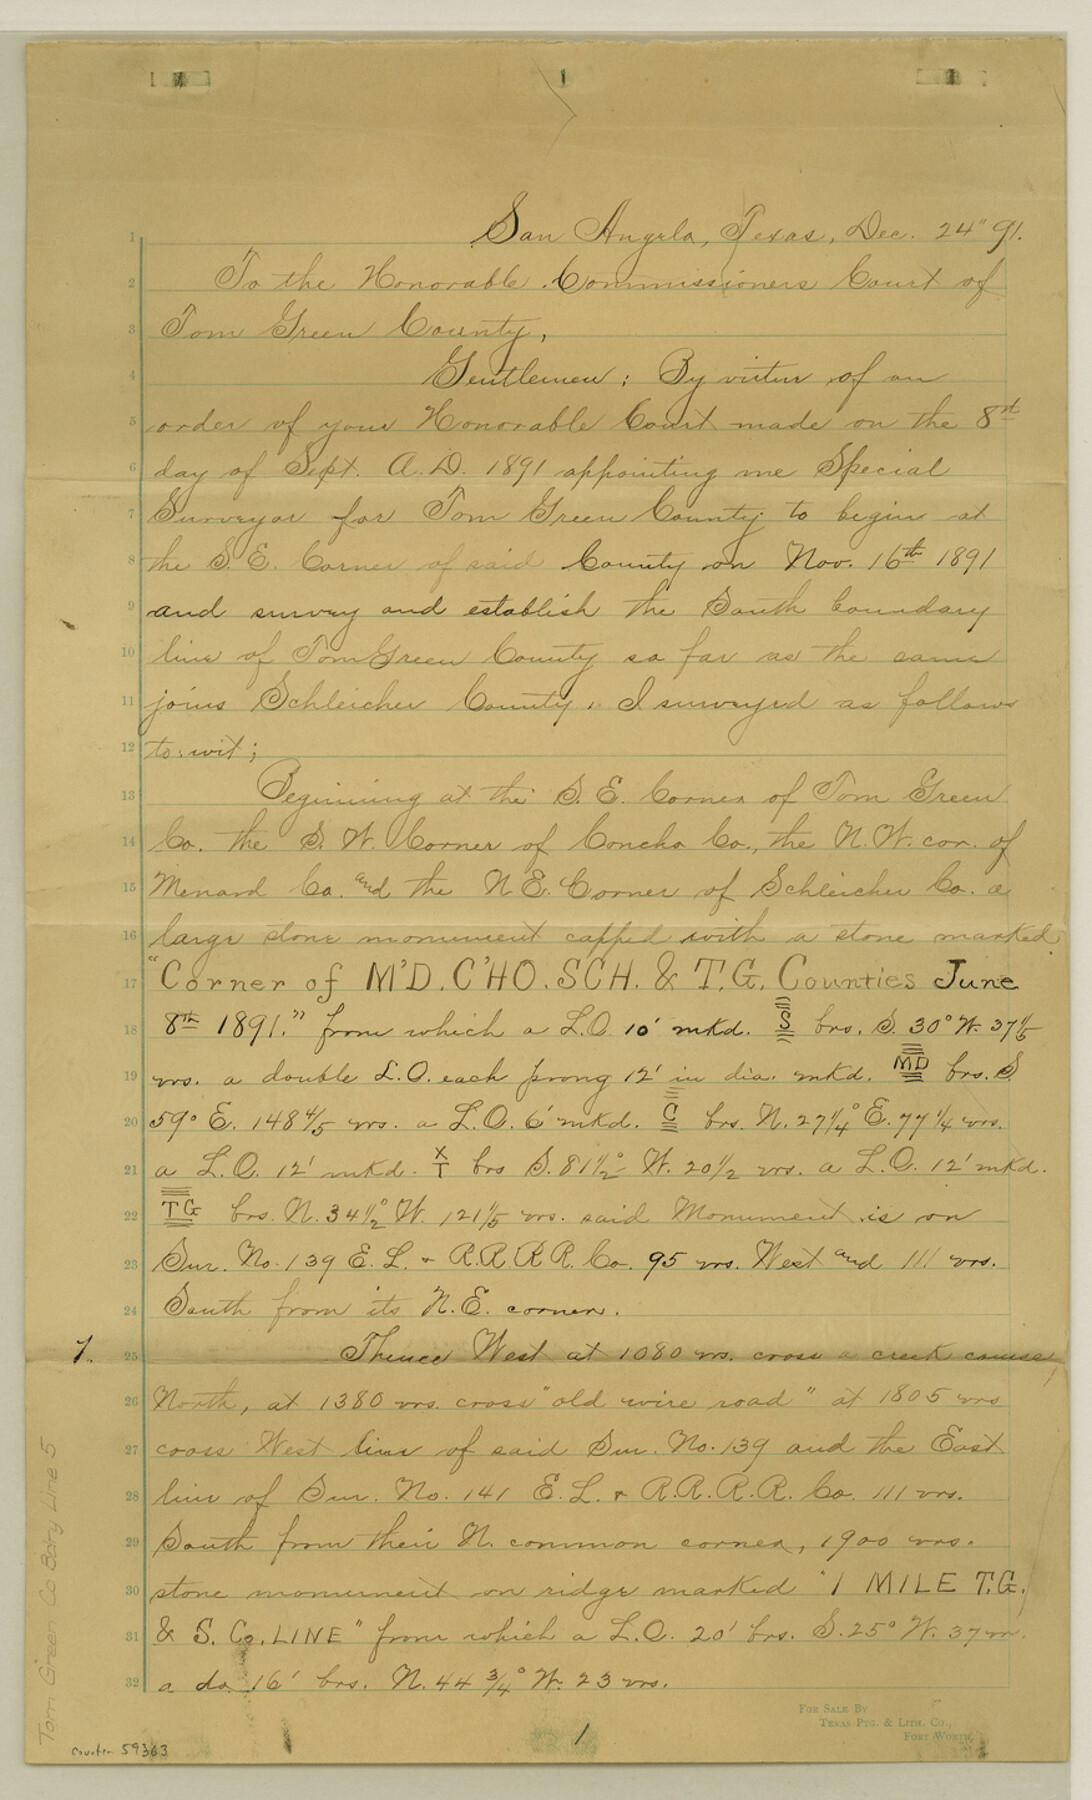 San Angelo, Texas, Dec. 24" 91.
To the Honorable Commissioners Court of
Tom Green County,
Gentlemen: By virtue of an
order of your Honorable Court made on the 8th
day of Sept. A.D. 1891 appointing me Special
Surveyor for Tom Green County to begin at
the S.E. Corner of said County on Nov. 16th 1891
and survey and establish the South boundary
line of Tom Green County so far as the same
joins Schleicher County, I surveyed as follows
to:wit;
Beginning at the S.E. Corner of Tom Green
Co. the S.W. Corner of Concho Co., the N.W. cor. of
Menard Co. and the N.E. Corner of Schleicher Co. a
large stone monument capped with a stone marked
"Corner of M'D. C'HO. SCH. & T.G. Counties June
8th 1891." from which a L.O. 10' mkd. S brs. S. 30° W. 37 1/5
vrs. a double L.O. each prong 12' in dia. mkd. MD brs. S
59° E. 148 4/5 vrs. a L.O. 6' mkd. C brs. N. 27 1/4° E. 77 1/4 vrs.
a L.O. 12' mkd. X T brs S. 81 1/2° W. 20 1/2 vrs. a L.O. 12' mkd.
TG brs. N. 34 1/2° W. 121 1/5 vrs. said Monument is on
Sur. No. 139 E.L. & R.R.R.R. Co. 95 vrs. West and 111 vrs.
South from its N.E. corner.
1. Thence West at 1080 vrs. cross a creek course
North, at 1380 vrs. cross "old wire road" at 1805 vrs
cross West line of said Sur. No. 139 and the East
line of Sur. No. 141 E.L. & R.R.R.R. Co. 111 vrs.
South from their N. common corner, 1900 vrs.
stone monument on ridge marked "1 MILE T.G.
& S. Co. LINE" from which a L.O. 20' brs. S. 25° W. 37 vr.
a do 16' brs. N. 44 3/4° W. 23 vrs.
1
2
3
4
5
6
7
8
9
10
11
12
13
14
15
16
17
18
19
20
21
22
23
24
25
26
27
28
29
30
31
32
For Sale By
Texas Ptg. & Lith. Co.,
Fort Worth.
1
Tom Green Co Bdry Line 5
counter 59363